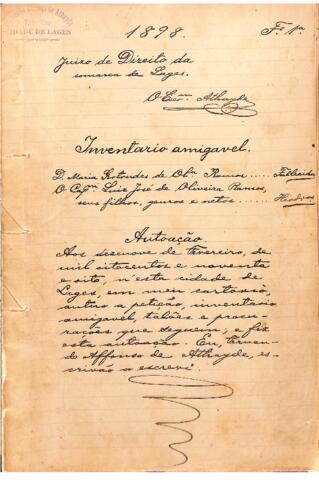 1898. Fs. 1a
CIDADE DE LAGES
Juizo de Direito da
comarca de Lages.
O Escm. Athayde
Inventario amigavel.
D. Maria de Olª. Ramos .... Fallecida
O Capm. Luiz José de Oliveira Ramos,
seus filhos, genros e netos .... Herdeiros
Autoação.
Aos desenove de Fevereiro, de
mil oitocentos e noventa
e oito, n'esta cidade de
Lages, em meu cartorio,
autuo a petição, inventario
amigavel, talões e procu-
rações que seguem; e fiz
esta autoação. Eu, Fernan-
do Affonso de Athayde, es-
crivão a escrevi.